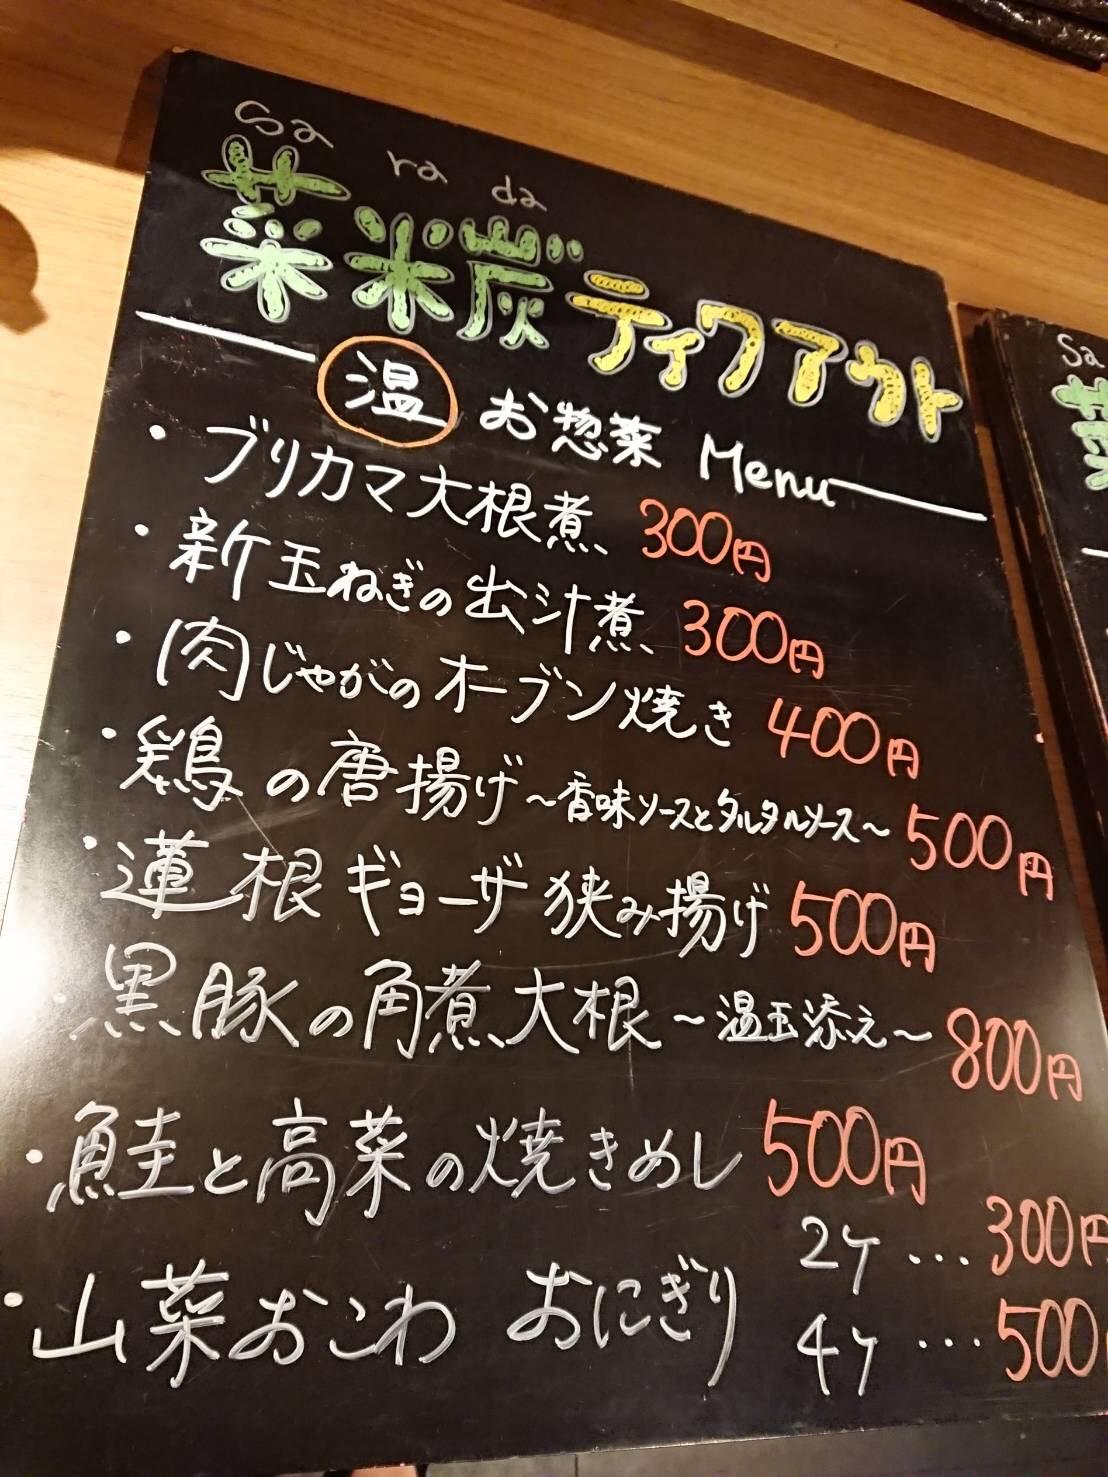 Sa ra da
菜米炭 ティクアウト
温 お惣菜 Menu
・ブリカマ大根煮 300円
・新玉ねぎの出汁煮 300円
・肉じゃがのオーブン焼き 400円
・鶏の唐揚げ ~香味ソースとタルタルソース~ 500円
・蓮根ギョーザ狭み揚げ 500円
・黒豚の角煮大根 ~温玉添え~ 800円
・鮭と高菜の焼きめし 500円
・山菜おこわ おにぎり 2ケ…300円
4ケ…500
Sa
菜